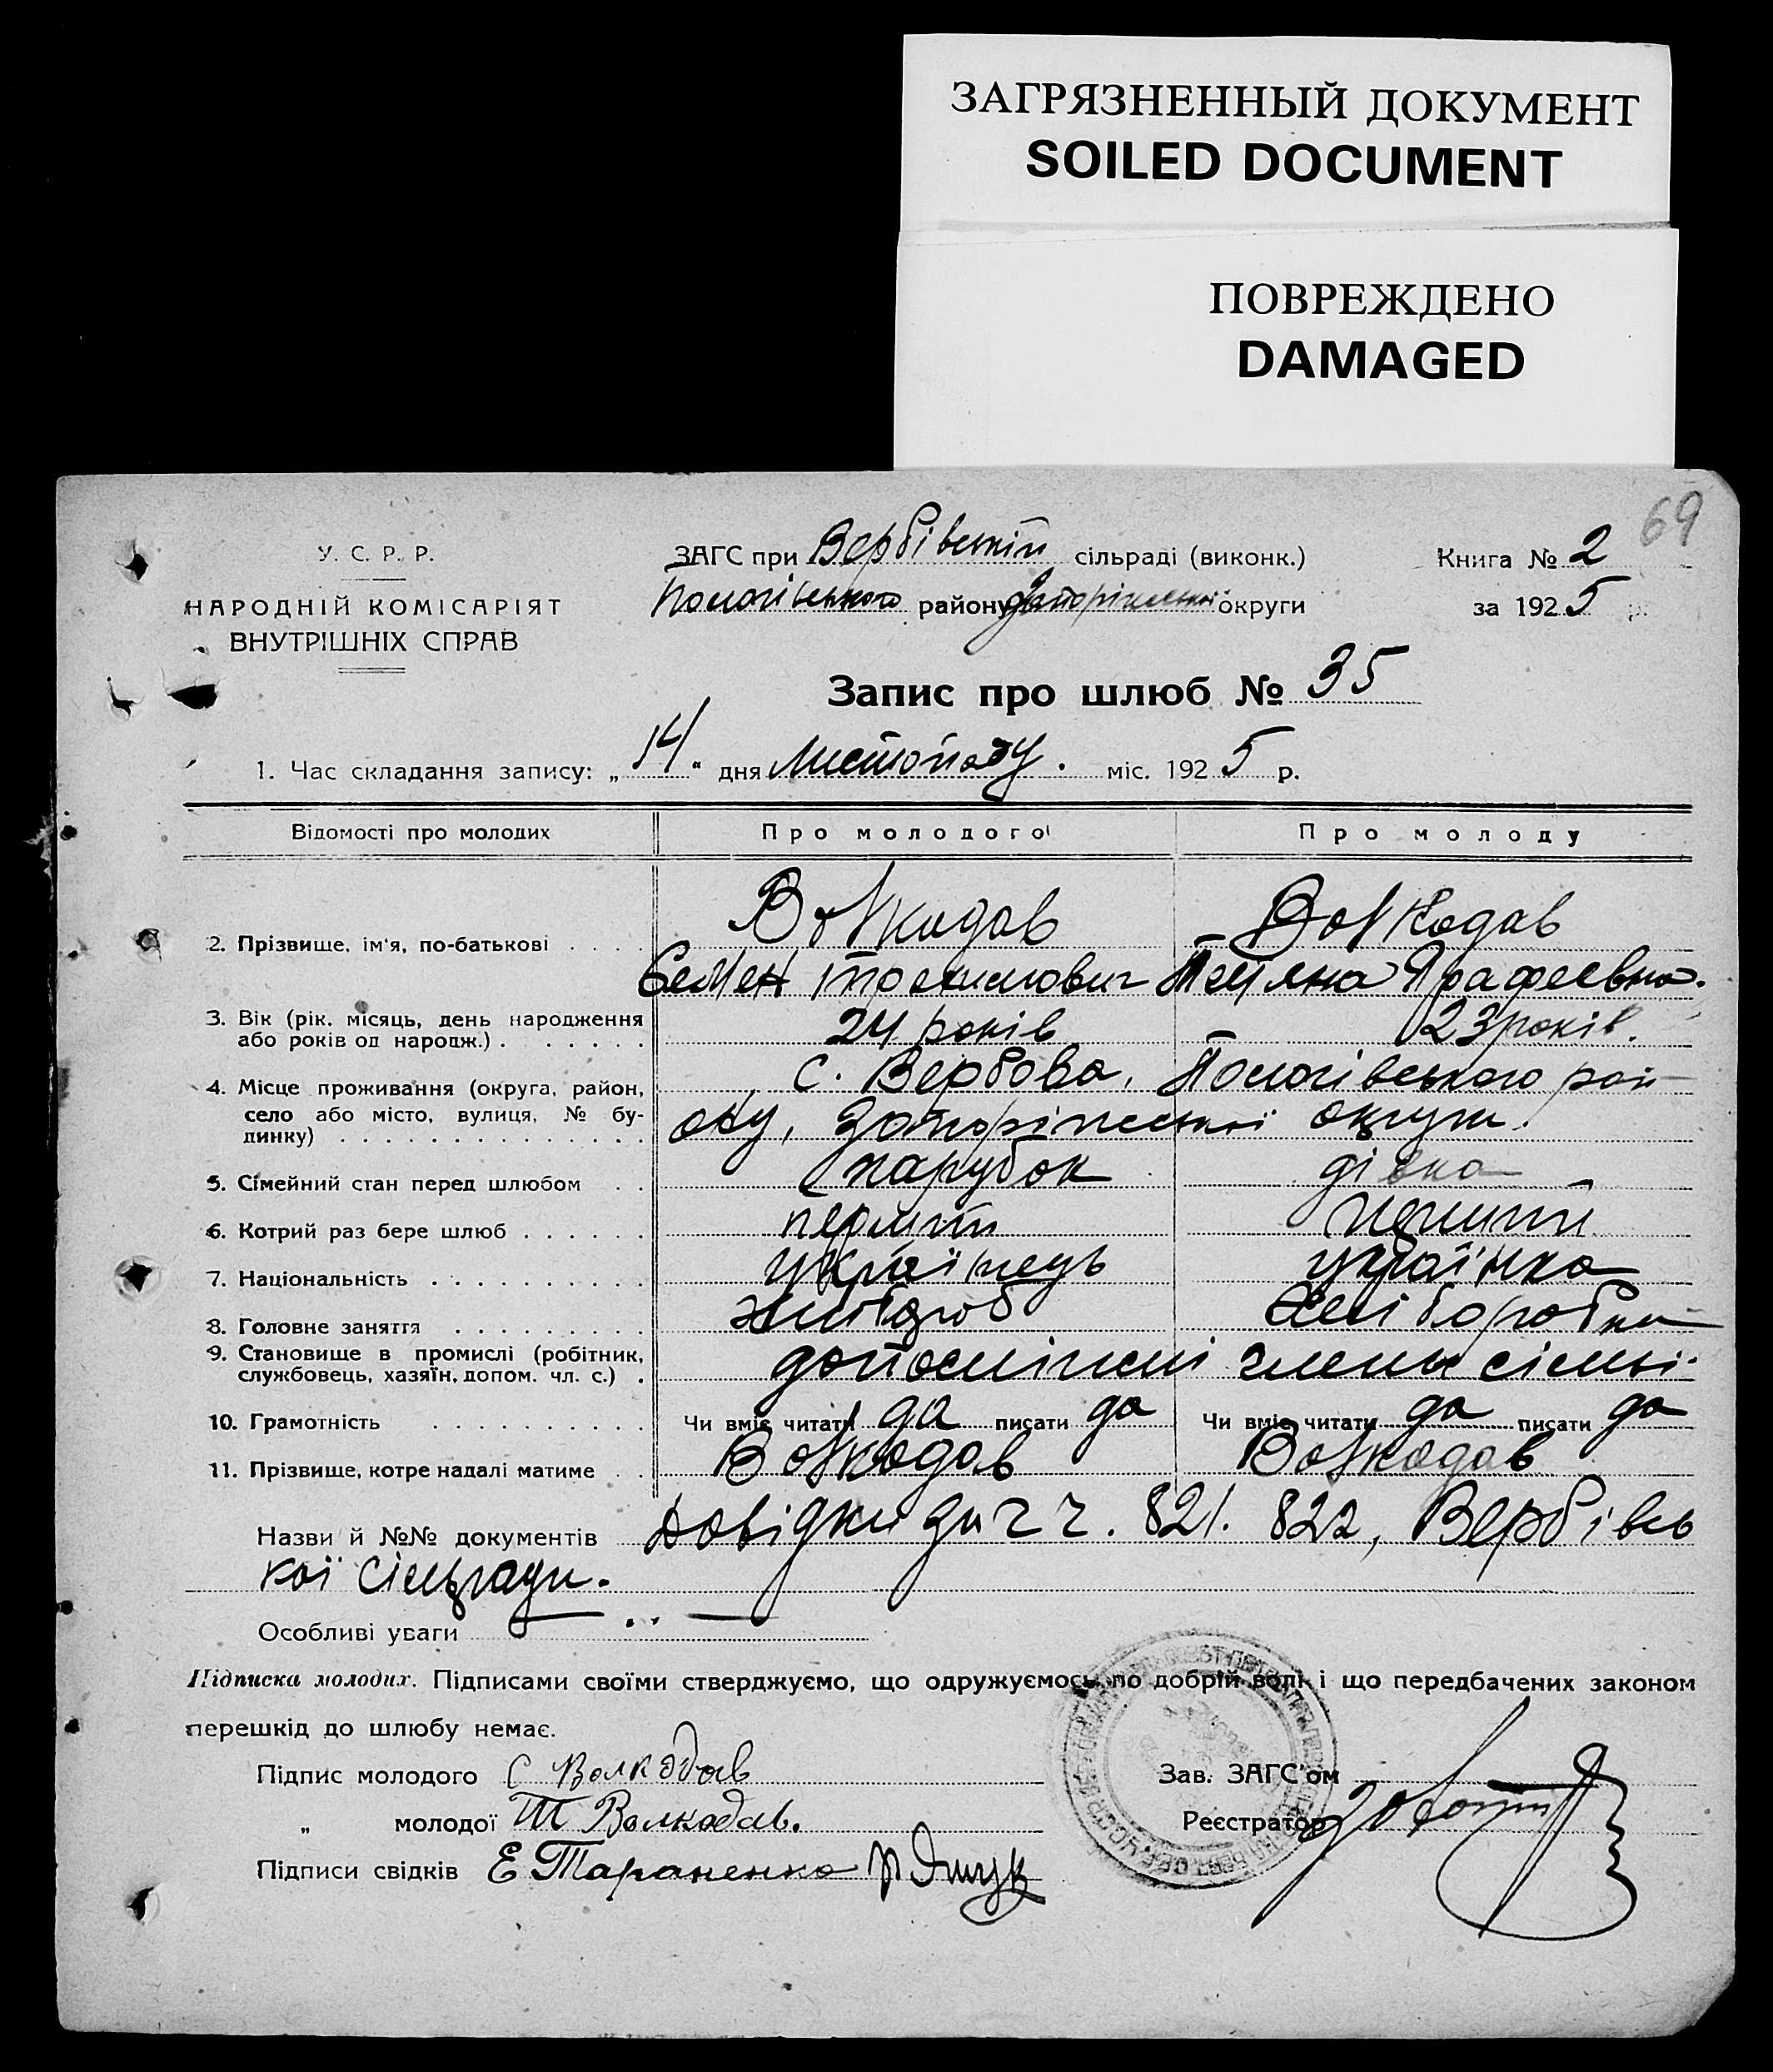 ЗАГРЯЗНЕННЫЙ ДОКУМЕНТ
SOILED DOCUMENT
ПОВРЕЖДЕНО
DAMAGED
69
У. С. Р. Р.
НАРОДНІЙ КОМІСАРІЯТ
ВНУТРІШНІХ СПРАВ
ЗАГС при Вербівській сільраді (виконк.)
Пологівського району Запоріжської округи
Книга № 2
за 1925 р.
Запис про шлюб № 35
1. Час складання запису: „14“ дня Листопаду. міс. 1925 р.
Відомості про молодих Про молодого Про молоду
2. Прізвище, ім'я, по-батькові . . . . Волкодав Волкодав
Семен Тетяна
3. Вік (рік, місяць, день народження
або років од народж.) . . . . . . 24 років 23 років.
4. Місце проживання (округа, район,
село або місто, вулиця, № бу-
динку) . . . . . . . . . . . . . .
с. Вербова, Пологівського рай-
ону, Запоріжської округи.
5. Сімейний стан перед шлюбом . . парубок дівка
6. Котрий раз бере шлюб . . . . . . перший
7. Національність . . . . . . . . . . українець українка
8. Головне заняття . . . . . . . . . хліборобка
9. Становище в промислі (робітник,
службовець, хазяїн, допом. чл. с.) . допоміжні члени сімьі.
10. Грамотність . . . . . . . . . . Чи вміє читати да писати да Чи вміє читати да писати да
11. Прізвище, котре надалі матиме . . Волкодав Волкодав
Назви й №№ документів Довідки за ч ч. 821. 822, Вербівсь
кої сільради.
Особливі уваги
Підписка молодих. Підписами своїми стверджуємо, що одружуємось по добрій волі і що передбачених законом
перешкід до шлюбу немає.
Підпис молодого С Волкодав
„ молодої Т Волкодав.
Підписи свідків Е Тараненко
Зав. ЗАГС'ом
Реєстратор